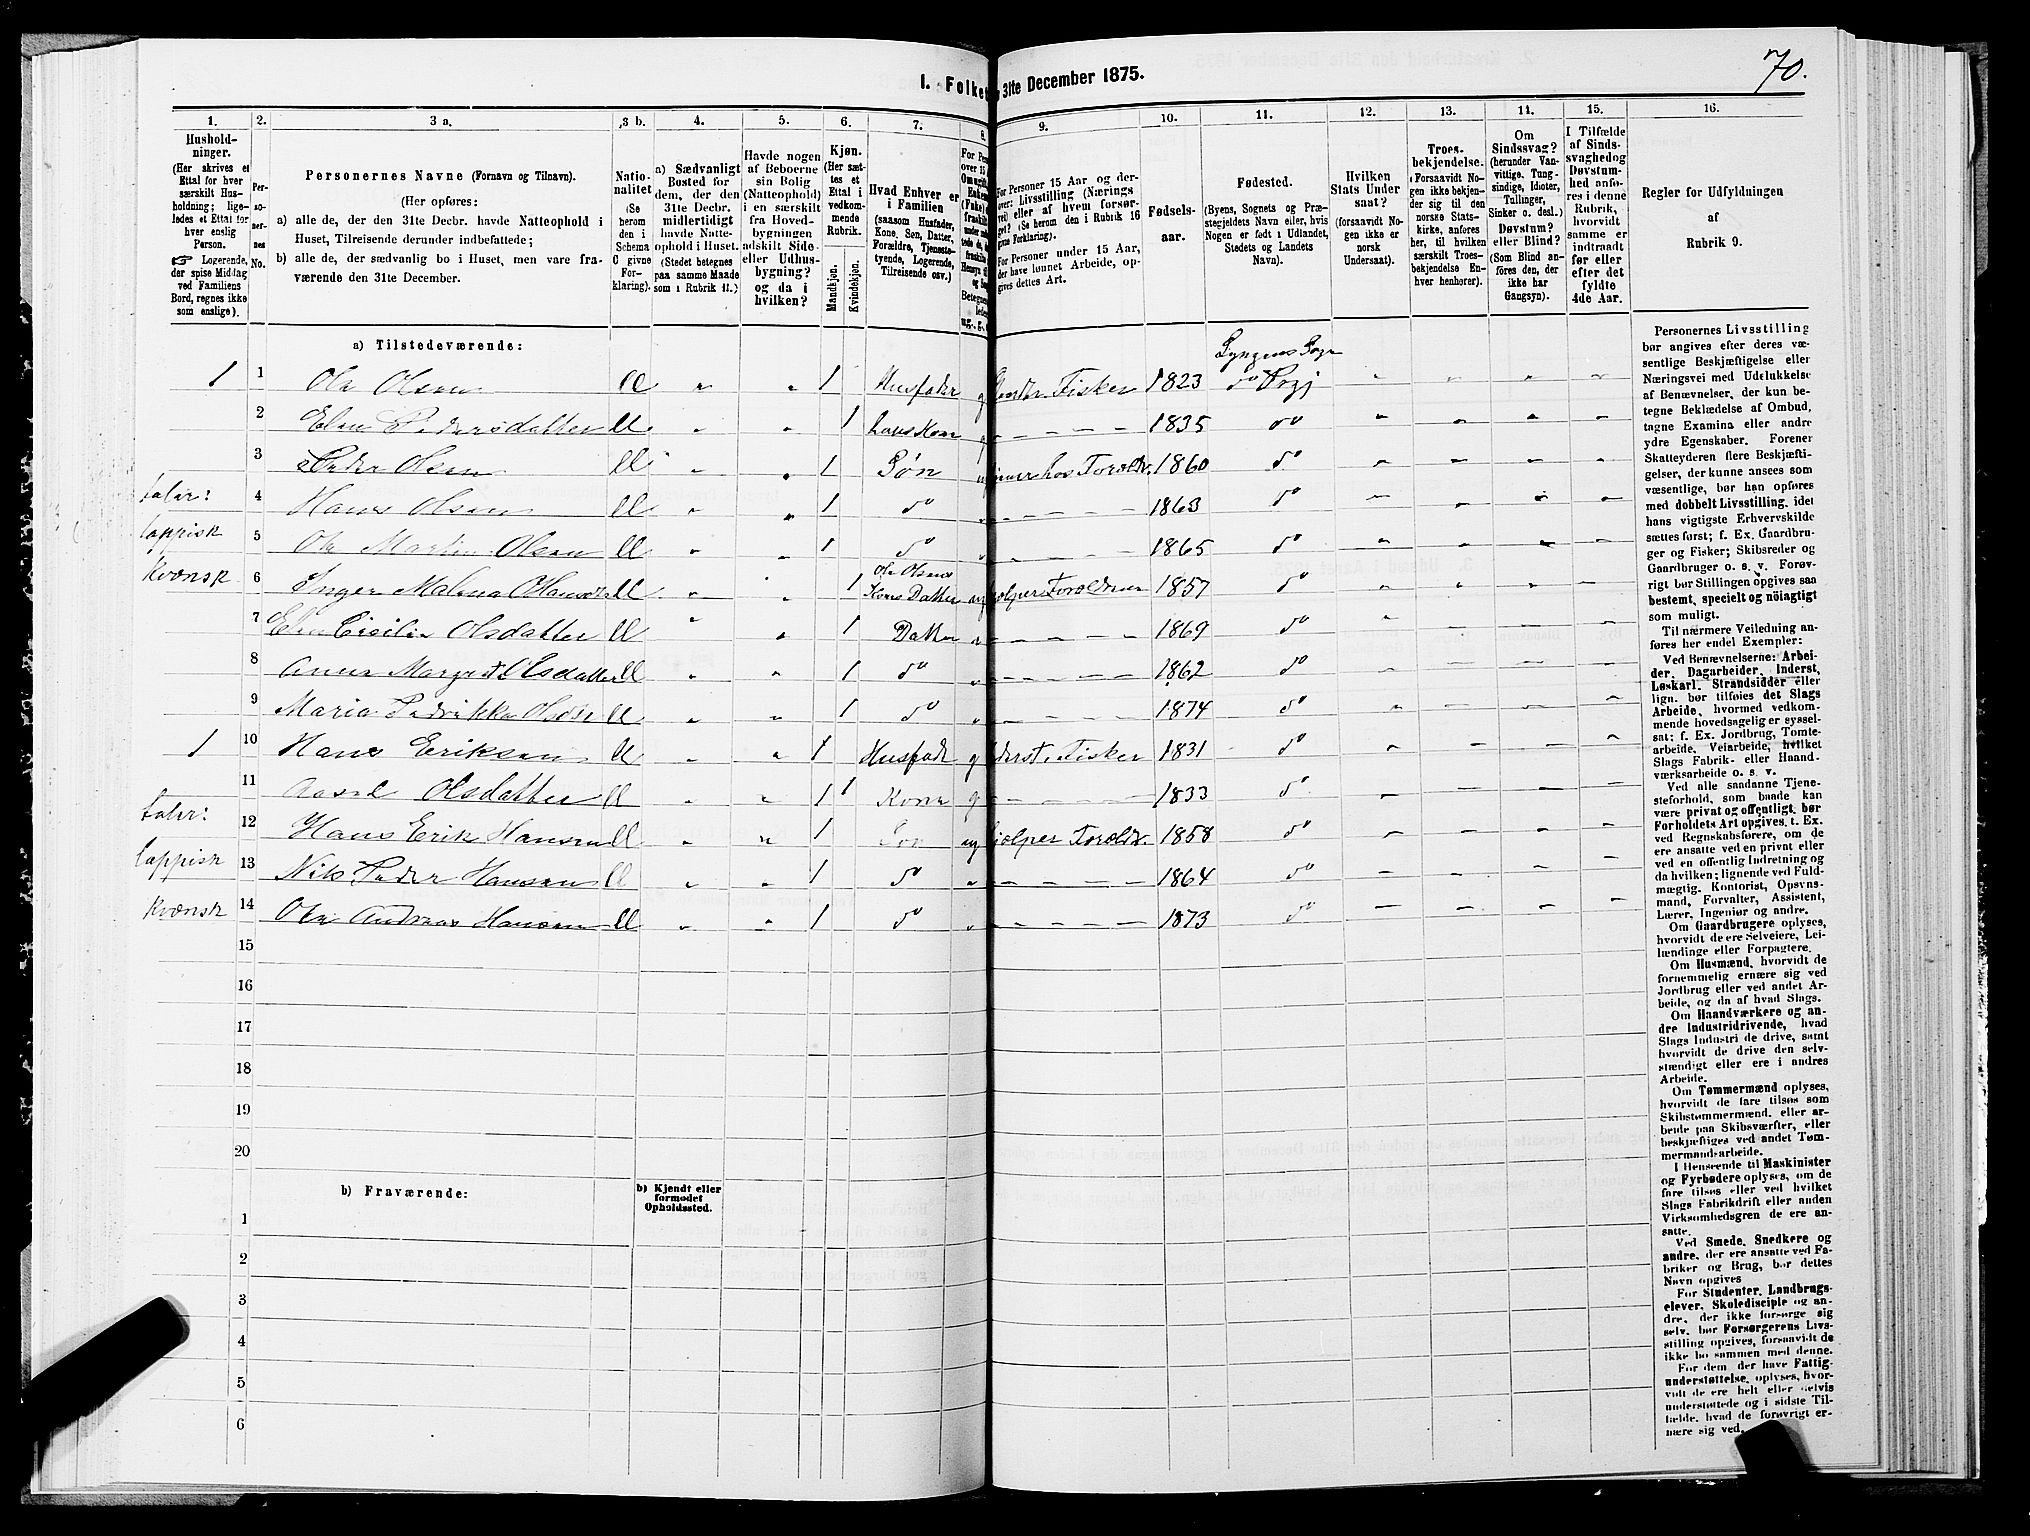 70.
I. Folket 31te December 1875.
1. 2. 3 a. 3 b. 4. 5. 6. 7. 8. 9. 10. 11. 12. 13. 14. 15. 16.
Hushold-
ninger.
(Her skrives et
Ettal for hver
særskilt Hus-
holdning; lige-
ledes et Ettal for
hver enslig
Person.
☞ Logerende,
der spise Middag
ved Familiens
Bord, regnes ikke
som enslige).
Per-
so-
ner-
nes
No.
Personernes Navne (Fornavn og Tilnavn).
(Her opføres:
a) alle de, der den 31te Decbr. havde Natteophold i
Huset, Tilreisende derunder indbefattede;
b) alle de, der sædvanlig bo i Huset, men vare fra-
værende den 31te December.
Natio-
nalitet
(Se
herom
den i
Schema
C givne
For-
klaring).
a) Sædvanligt
Bosted for
dem, der den
31te Decbr.
midlertidigt
havde Natte-
ophold i Huset.
(Stedet betegnes
paa samme Maade
som i Rubrik 11.)
Havde nogen
af Beboerne
sin Bolig
(Natteophold)
i en særskilt
fra Hoved-
bygningen
adskilt Side-
eller Udhus-
bygning?
og da i
hvilken?
Kjøn.
(Her sæt-
tes et
Ettal i
vedkom-
mende
Rubrik.
Mandkjøn.
Kvindekjøn.
Hvad Enhver er
i Familien
(saasom Husfader,
Kone, Søn, Datter,
Forældre, Tjeneste-
tyende, Logerende,
Tilreisende osv.)
For Personer 15 Aar og der-
over: Livsstilling (Nærings
vei) eller af hvem forsør-
get? (Se herom den i Rubrik 16
givne Forklaring).
For Personer under 15 Aar,
der have lønnet Arbeide, op-
gives dettes Art.
Fødsels-
aar.
Fødested.
(Byens, Sognets og Præ-
stegjeldets Navn eller, hvis
Nogen er født i Udlandet,
Stedets og Landets
Navn).
Hvilken
Stats Under
saat?
(forsaavidt No-
gen ikke er
norsk
Undersaat).
Troes-
bekjendelse.
(Forsaavidt No-
gen ikke bekjen-
der sig til den
norske Stats-
kirke, anføres
her, til hvilken
særskilt Troes-
bekjendelse En-
hver henhører).
Om
Sindssvag?
(herunder Van-
vittige, Tung-
sindige, Idioter,
Tullinger,
Sinker o. desl.)
Døvstum?
eller Blind?
(Som Blind an-
føres den, der
ikke har
Gangsyn).
I Tilfælde
af Sinds-
svaghed og
Døvstum-
hed anfø-
res i denne
Rubrik,
hvorvidt
samme er
indtraadt
før eller
efter det
fyldte
4de Aar.
Regler for Udfyldningen
af
Rubrik 9.
a) Tilstedeværende:
Lyngens Sogn
1 1 Ole Olsen ll " " 1 Husfader g Fisker 1823 do Prgj
2 Elen Pedersdatter ll " " 1 hans Kone g 1835 do
3 Peder Olsen ll " " 1 Søn ug hos Foreldr. 1860 do
taler: 4 Hans Olsen ll " " 1 do " 1863 do
lappisk 5 Ole Martin Olsen ll " " 1 do " 1865 do
Ole Olsens
kvænsk 6 Inger Malena ll " " 1 Kones Datter ug hjelper Foreldrene 1857 do
7 Elen Cicilie Olsdatter ll " " 1 Datter " 1869 do
8 Anna Margret Olsdatter ll " " 1 do " 1862 do
9 Maria Olsdtr ll " " 1 do " 1874 do
1 10 Hans Eriksen ll " " 1 Husfader g Fisker 1831 do
11 Olsdatter ll " " 1 1 Kone g 1833 do
taler: 12 Hans Erik Hansen ll " " 1 Søn ug hjelper Foreldr. 1858 do
lappisk 13 Nils Peder Hansen ll " " 1 do " 1864 do
kvænsk 14 Ole Andreas Hansen ll " " 1 do " 1873 do
15
16
17
18
19
20
b) Fraværende:
b) Kjendt eller
formodet
Opholdssted.
1
2
3
4
5
6
Personernes Livsstilling
bør angives efter deres væ-
sentlige Beskjæftigelse eller
Næringsvei med Udelukkelse
af Benævnelser, der kun be-
tegne Beklædelse af Ombud,
tagne Examina eller andre
ydre Egenskaber. Forener
Skatteyderen flere Beskjæfti-
gelser, der kunne ansees som
væsentlige, bør han opføres
med dobbelt Livsstilling, idet
hans vigtigste Erhvervskilde
sættes først; f. Ex. Gaardbru-
ger og Fisker; Skibsreder og
Gaardbruger o. s. v. Forøv-
rigt bør Stillingen opgives saa
bestemt, specielt og nöiagtigt
som muligt.
Til nærmere Veiledning an-
føres her endel Exempler:
Ved Benævnelserne: Arbei-
der, Dagarbeider, Inderst,
Løskarl, Strandsidder eller
lign. bør tilføies det Slags
Arbeide, hvormed vedkom-
mende hovedsagelig er syssel-
sat; f. Ex. Jordbrug, Tomte-
arbeide, Veiarbeide, hvilket
Slags Fabrik- eller Haand-
værksarbeide o. s. v.
Ved alle saadanne Tjene-
steforhold, som baade kan
være privat og offentligt, bør
Forholdets Art opgives, t. Ex.
ved Regnskabsførere, om de
ere ansatte ved en privat eller
ved en offentlig Indretning og
da hvilken; lignende ved Fuld-
mægtig, Kontorist, Opsyns-
mand, Forvalter, Assistent,
Lærer, Ingeniør og andre.
Om Gaardbrugere oplyses,
hvorvidt de ere Selveiere, Lei-
lændinge eller Forpagtere.
Om Husmænd, hvorvidt de
fornemmelig ernære sig ved
Jordbrug eller ved andet Ar-
beide, og da af hvad Slags.
Om Haandværkere og an-
dre Industridrivende, hvad
Slags Industri de drive, samt
hvorvidt de drive den selv-
stændigt eller ere i andres
Arbeide.
Om Tømmermænd oplyses,
hvorvidt de fare tilsøs som
Skibstømmermænd, eller ar-
beide paa Skibsværfter, eller
beskjæftiges ved andet Tøm-
mermandsarbeide.
I Henseende til Maskinister
og Fyrbødere oplyses, om de
fare tilsøs eller ved hvilket
Slags Fabrikdrift eller anden
Virksomhedsgren de ere an-
satte.
Ved Smede, Snedkere og
andre, der ere ansatte ved Fa-
briker og Brug, bør dettes
Navn opgives
For Studenter, Landbrugs-
elever, Skoledisciple og an-
dre, der ikke forsørge sig
selv, bør Forsørgerens Livs-
stilling opgives, forsaavidt de
ikke bo sammen med denne.
For dem, der have Fattig-
understøttelse, oplyses, hvor-
vidt de ere helt eller delvis
understøttede og i sidste Til-
fælde, hvad de forøvrigt er-
nære sig ved.